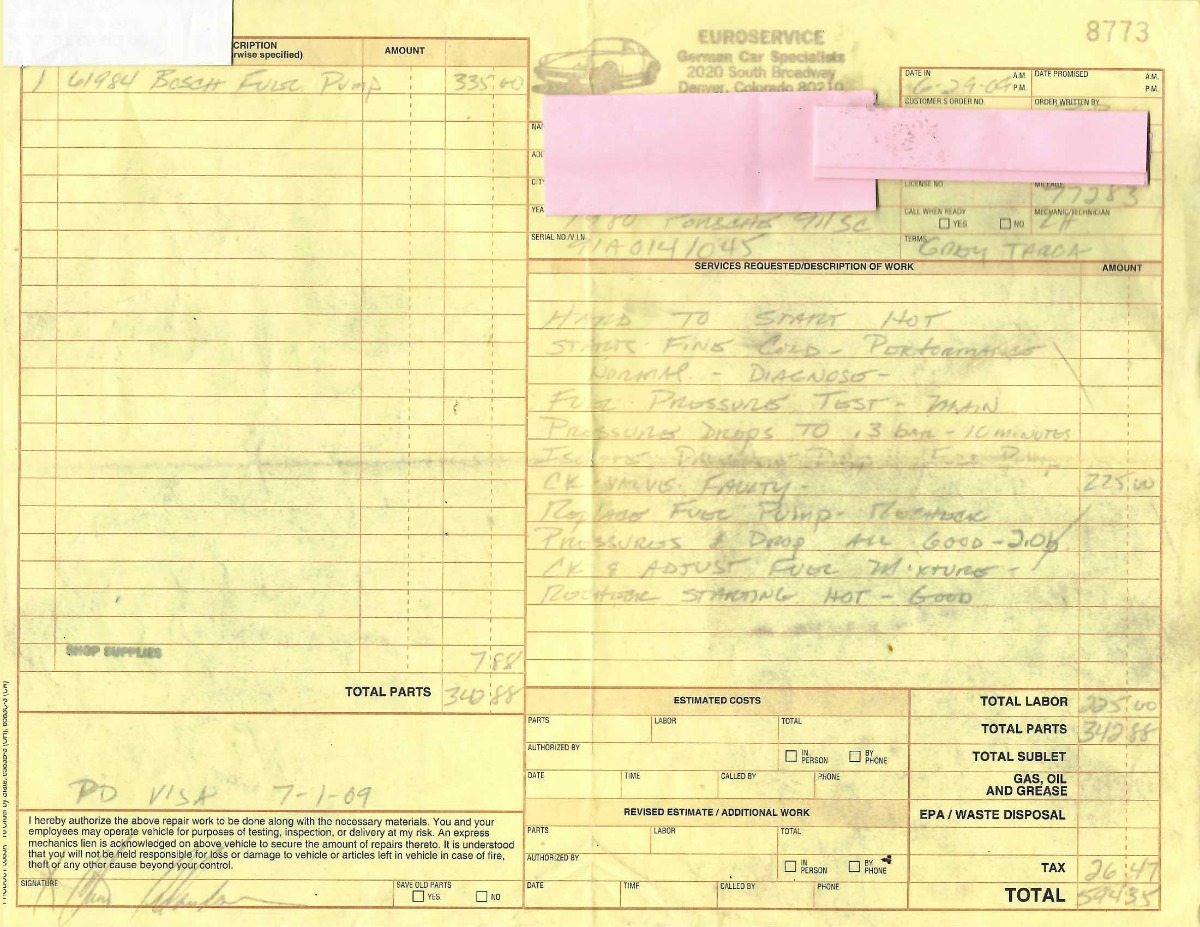 8773
EUROSERVICE
German Car Specialists
2020 South Broadway
Denver, Colorado 80210
CRIPTION
rwise specified)
AMOUNT
1 61984 BOSCH FUEL PUMP 335.00
SHOP SUPPLIES 7.88
TOTAL PARTS 342.88
PD VISA 7-1-09
I hereby authorize the above repair work to be done along with the necessary materials. You and your
employees may operate vehicle for purposes of testing, inspection, or delivery at my risk. An express
mechanics lien is acknowledged on above vehicle to secure the amount of repairs thereto. It is understood
that you will not be held responsible for loss or damage to vehicle or articles left in vehicle in case of fire,
theft or any other cause beyond your control.
SIGNATURE
SAVE OLD PARTS
YES NO
DATE IN 6-29-09 A.M. P.M.
DATE PROMISED A.M. P.M.
CUSTOMER'S ORDER NO. ORDER WRITTEN BY
NA
ADD
CITY
LICENSE NO. MILEAGE 77283
YEA 1980 PORSCHE 911SC
CALL WHEN READY YES NO
MECHANIC/TECHNICIAN LH
SERIAL NO./V.I.N. 91A0141045
TERMS GREY TARGA
SERVICES REQUESTED/DESCRIPTION OF WORK AMOUNT
HARD TO START HOT
STARTS FINE COLD - PERFORMANCE
NORMAL - DIAGNOSE -
FUEL PRESSURE TEST - MAIN
PRESSURE DROPS TO .3 BAR - 10 MINUTES
ISOLATE PRESSURE DROP FUEL PUMP
CK-VALVE FAULTY - 225.00
REPLACE FUEL PUMP - RECHECK
PRESSURES & DROP ALL GOOD - 2.0b
CK & ADJUST FUEL MIXTURE -
RECHECK STARTING HOT - GOOD
ESTIMATED COSTS
PARTS LABOR TOTAL
AUTHORIZED BY IN PERSON BY PHONE
DATE TIME CALLED BY PHONE
REVISED ESTIMATE / ADDITIONAL WORK
PARTS LABOR TOTAL
AUTHORIZED BY IN PERSON BY PHONE
DATE TIME CALLED BY PHONE
TOTAL LABOR 225.00
TOTAL PARTS 342.88
TOTAL SUBLET
GAS, OIL
AND GREASE
EPA / WASTE DISPOSAL
TAX 26.47
TOTAL 594.35